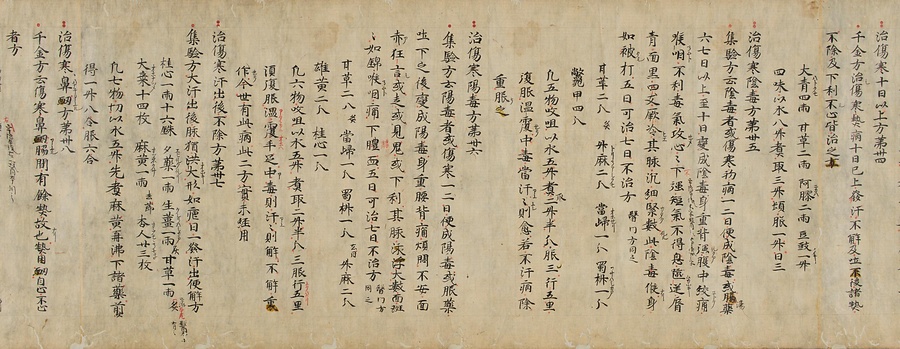 治傷寒十日以上方第卅四
千金方治傷寒熱病十日已上發汗不解及吐下後諸熱
不除及下利不止皆治之方
大青四兩 甘草二兩 阿膠二兩 豆豉一升
四味以水八升煮取三升頓服一升日三
治傷寒陰毒方第卅五
集驗方云陰毒者或傷寒初病一二日便成陰毒或服藥
六七日以上至十日變成陰毒身重背強腹中絞痛
喉咽不利毒氣攻心心下強短氣不得息嘔逆脣
青面黑四支厥冷其脈沉細緊數此陰毒候身
如被打五日可治七日不治方 醫門方同之
甘草二分 升麻二分 當歸一分 蜀椒一分
鱉甲四分
凡五物㕮咀以水五升煮取二升半分服三行五里
復服溫覆中毒當汗汗則愈若不汗病除
重服之
治傷寒陽毒方第卅六
集驗方云陽毒者或傷寒一二日便成陽毒或服藥
吐下之後變成陽毒身重腰背痛煩悶不安面
赤狂言或走或見鬼或下利其脈浮大數面斑斑
如錦喉咽痛下膿血五日可治七日不治方 醫門方同之
甘草二分 當歸一分 蜀椒一分 升麻二分
雄黃二分 桂心一分
凡六物㕮咀以水五升煮取二升半分三服行五里
須復服溫覆手足中毒則汗汗則解不解重
作今世有此病此二方實未經用
治傷寒汗出後不除方第卅七
集驗方大汗出後脈猶洪大形如瘧日一發汗出便解方
桂心一兩十六銖 夕藥一兩 生薑一兩 甘草一兩
大棗十四枚 麻黃一兩 杏人廿三枚
凡七物切以水五升先煮麻黃再沸下諸藥煎
得一升八合服六合
治傷寒鼻衄方第卅八
千金方云傷寒鼻衄腸間有餘熱故也熱因衄自止不止
者方